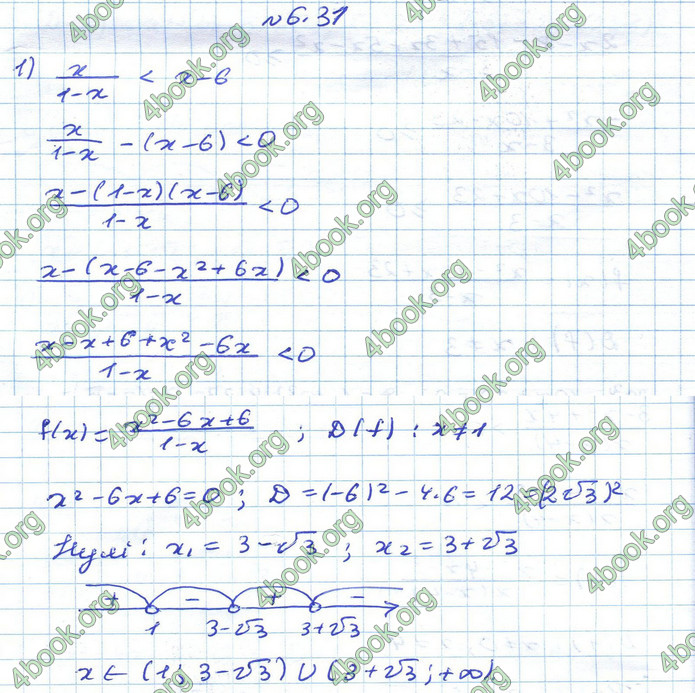 №6.31
1) x/(1-x) < x-6
x/(1-x) - (x-6) < 0
(x-(1-x)(x-6))/(1-x) < 0
(x-(x-6-x²+6x))/(1-x) < 0
(x-x+6+x²-6x)/(1-x) < 0
f(x) = (x²-6x+6)/(1-x) ; D(f) : x≠1
x²-6x+6=0 ; D=(-6)²-4·6=12=(2√3)²
Нулі: x₁ = 3-√3 ; x₂ = 3+√3
+ - + -
1 3-√3 3+√3
x ∈ (1; 3-√3) ∪ (3+√3; +∞).
4book.org